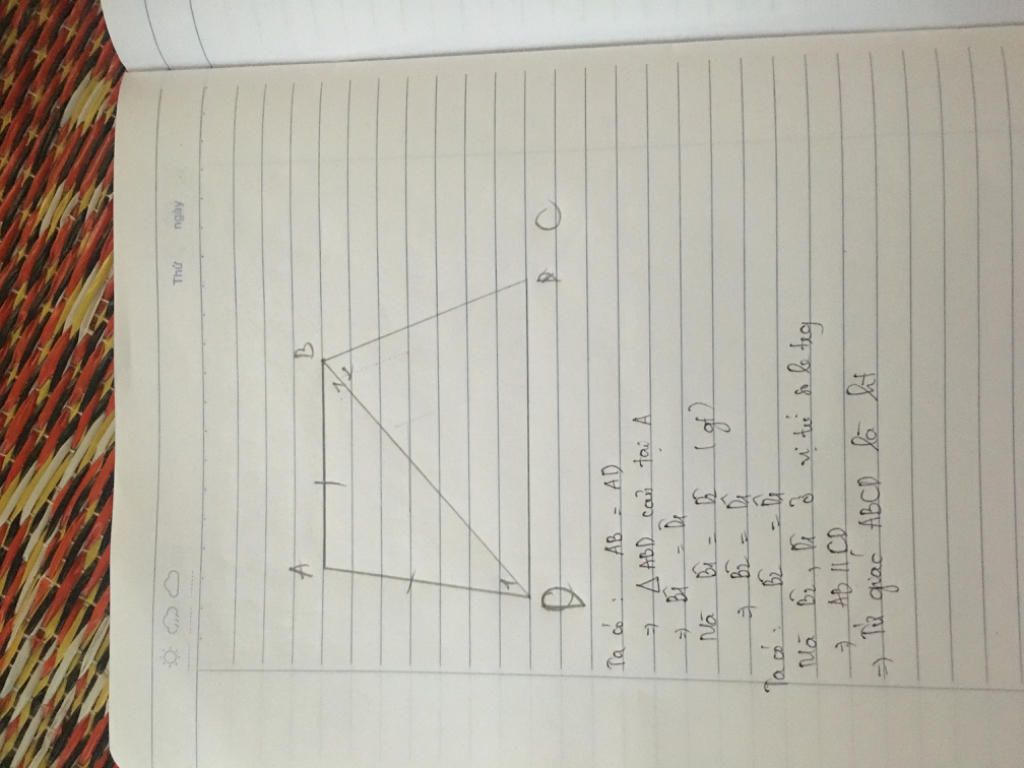 Thứ
ngày
A
B
1
2
1
D
C
Ta có : AB = AD
⇒ △ ABD cân tại A
⇒ B̂1 = D̂1
Mà B̂1 = B̂2 (gt)
⇒ B̂2 = D̂1
Ta có: B̂2 = D̂1
Mà B̂2, D̂1 ở vị trí so le trg
⇒ AB // CD
⇒ Tứ giác ABCD là ht